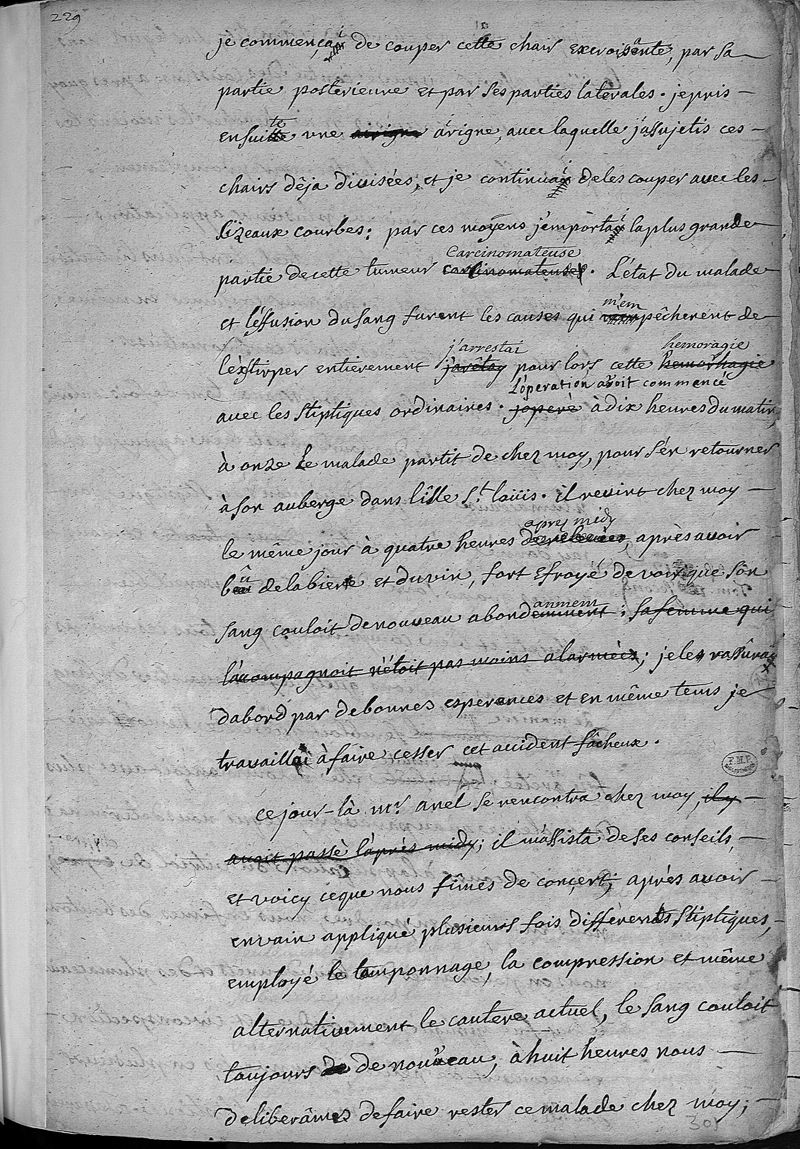 229
je commençai de couper cette chair excroisânte, par sa
partie postérieure et par ses parties latérales. je pris
ensuitte une airigne àrigne, avec laquelle j'assujetis ces
chairs dêja divisées, et je continuai de les couper avec les
cizeaux courbes: par ces moyens j'empòrtai la plus grande
Carcinomateuse
partie de cette tumeur carcinomateuse. L'état du malade
m'em
et l'éffusion du sang furent les causes qui pêcherent de
j'arrestai hemoragie
l'éxtirper entierement j'arêtay pour lors cette hemorhagie
L'operation avoit commencé
avec les stiptiques ordinaires. j'operé à dix heures du matin,
à onze Le malade partit de chez moy, pour s'én retourner
à son auberge dans l'ille St. loüis. il revint chez moy
apres midy
le même jour à quatre heures de relevées, après avoir
bû de la biere et du vin, fort éfroyé de voir que son
anment
sang couloit de nouveau abondemment; sa femme qui
l'acompagnoit n'étoit pas moins alarmée; je les rassûray
dabord par de bonnes esperences et en même tems je
travaillai à faire cesser cet accident fâcheux.
ce jour-là mr. anel se rencontra chez moy, il y
avoit passé l'après midy; il m'assista de ses conseils,
et voicy ce que nous fîmes de concert; après avoir
envain appliqué plusieurs fois différents stiptiques,
employé le tamponnage, la compression et même
alternativement le cautere actuel, le sang couloit
toujours de de nouveau, à huit heures nous
deliberâmes de faire rester ce malade chez moy;
301